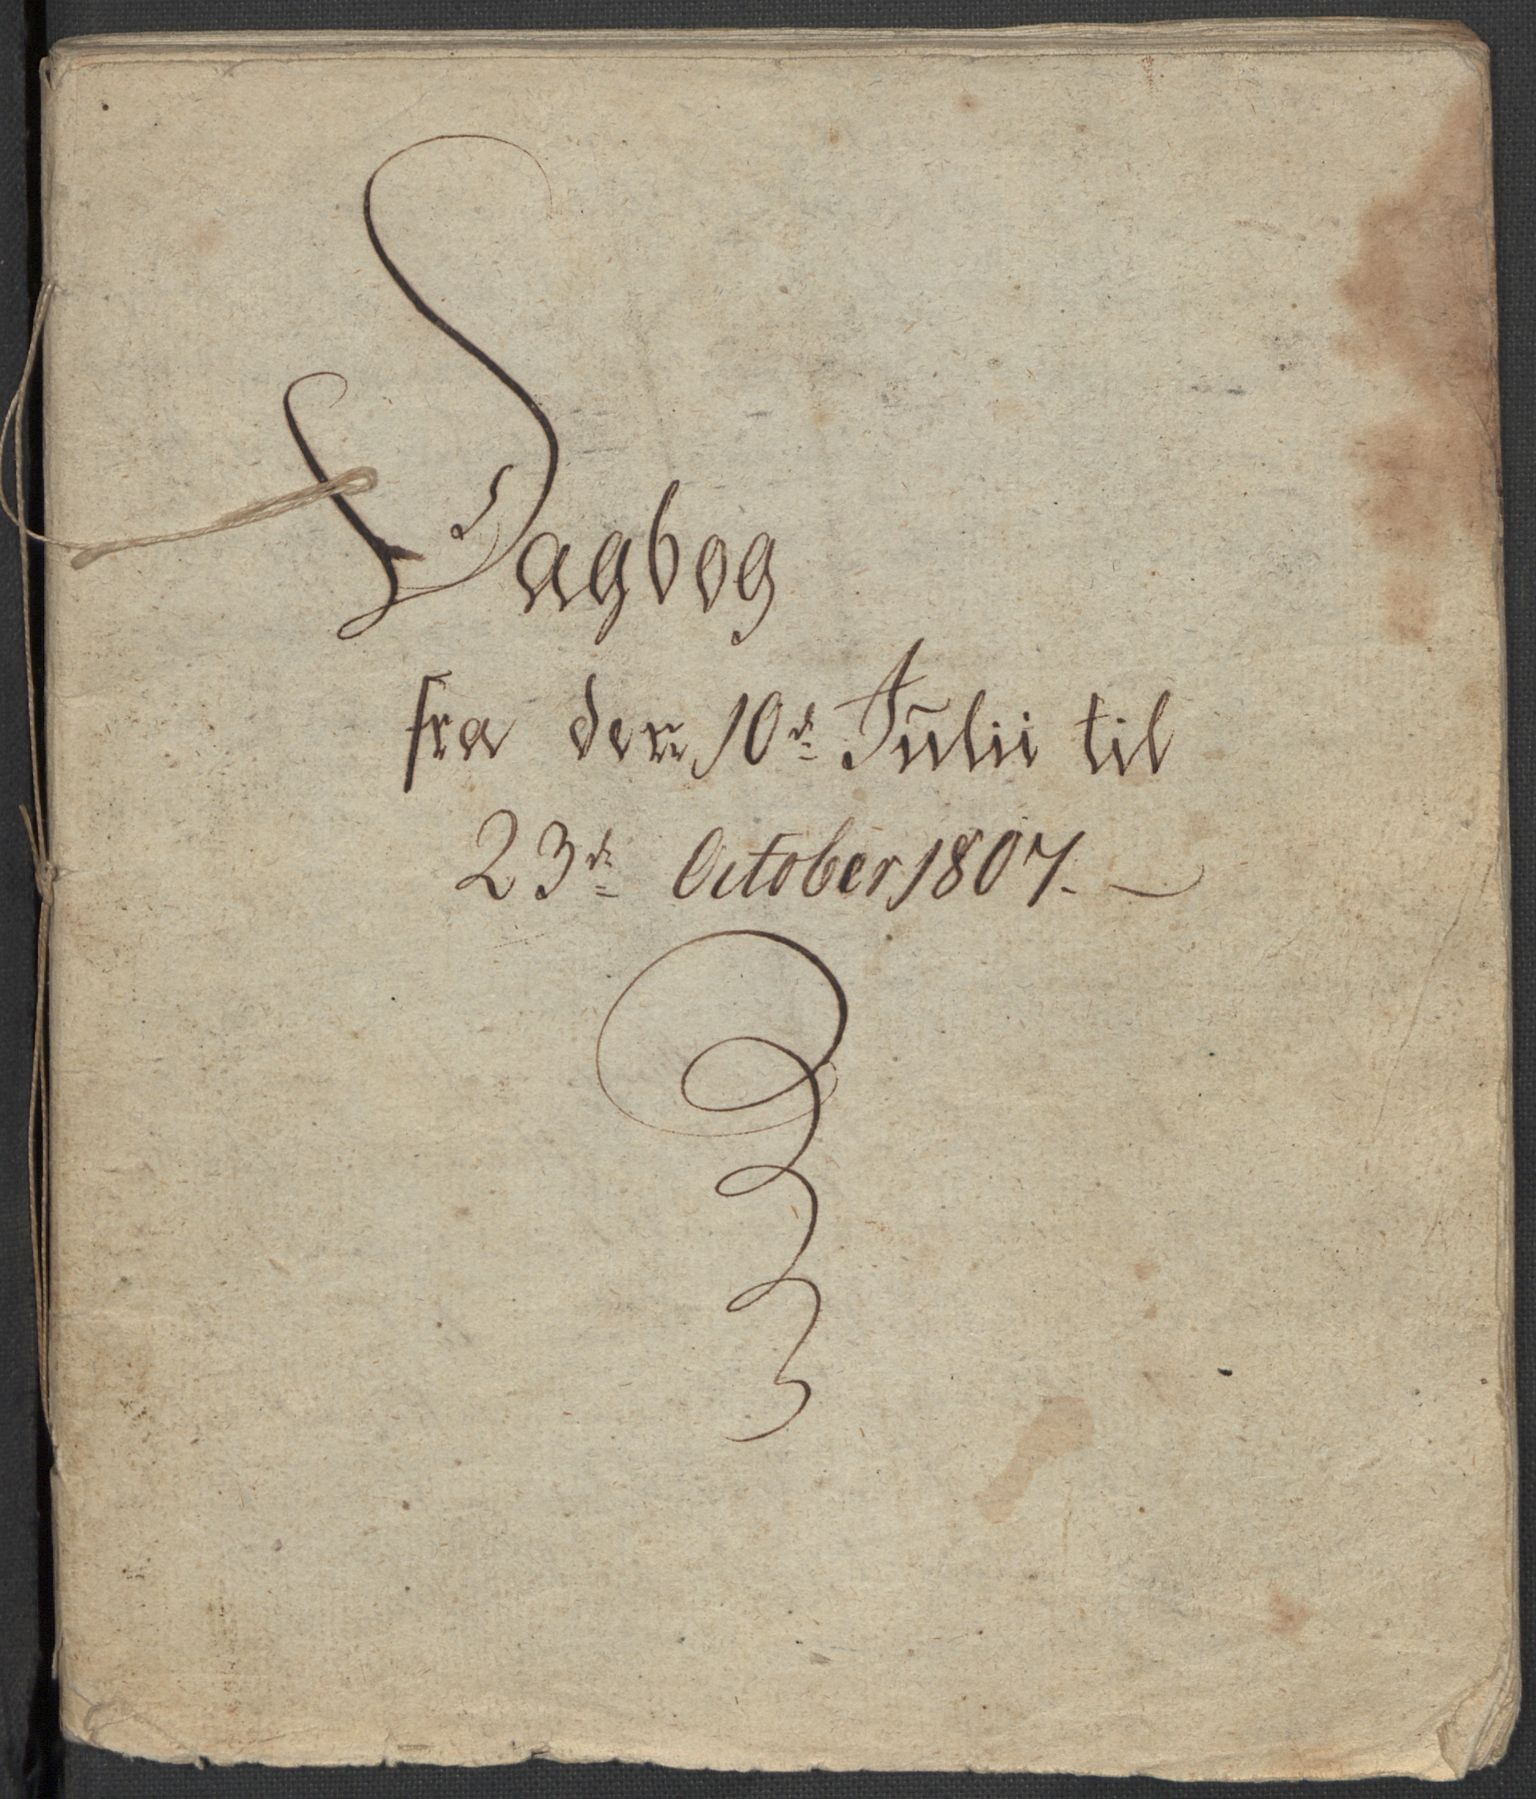 Dagbog
fra den 10de Julii til
23de October 1807.